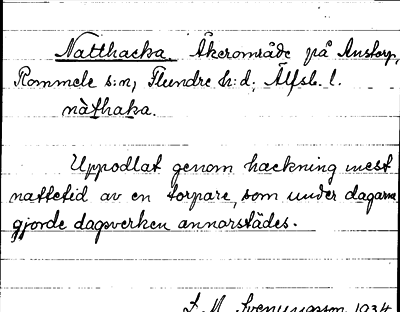 Natthacka. Åkerområde på Anstorp,
Rommele s:n, Flundre h:d, Älfsb. l.
näthaka.
Uppodlat genom hackning mest
nattetid av en torpare, som under dagarna
gjorde dagsverken annorstädes.
Svenungsson 1934